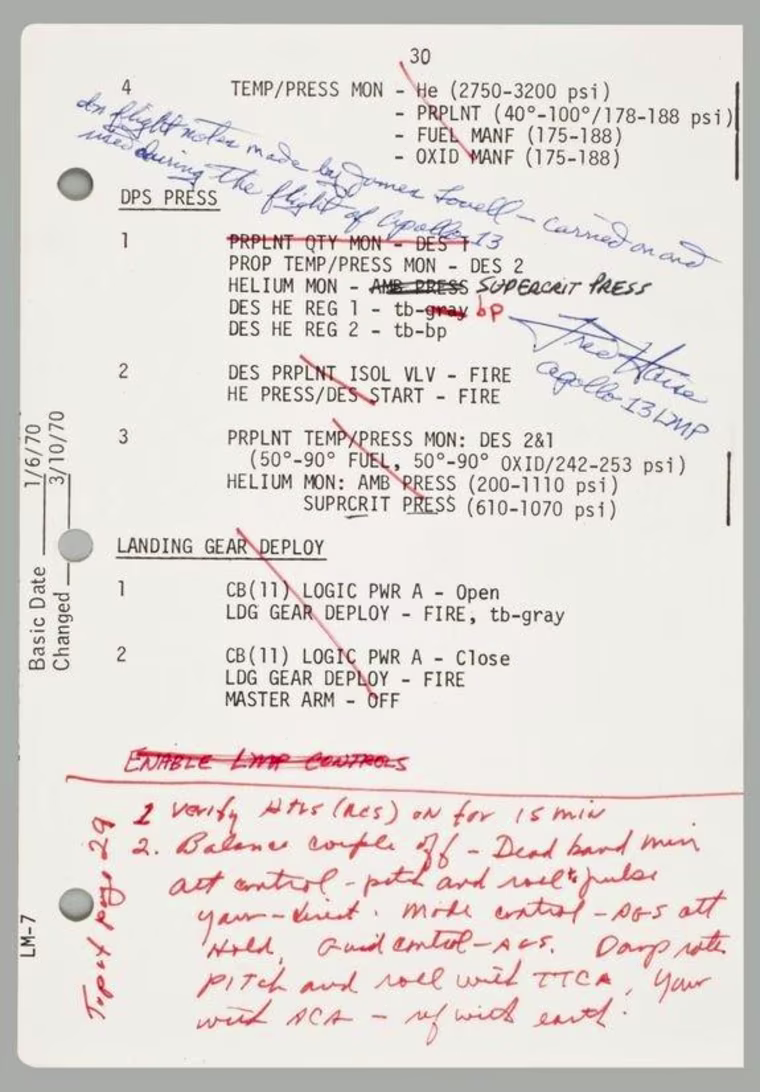 30
4 TEMP/PRESS MON - He (2750-3200 psi)
- PRPLNT (40°-100°/178-188 psi)
- FUEL MANF (175-188)
- OXID MANF (175-188)
In flight notes made by James Lovell - carried on and
used during the flight of Apollo 13
DPS PRESS
1 PRPLNT QTY MON - DES 1
PROP TEMP/PRESS MON - DES 2
HELIUM MON - AMB PRESS SUPERCRIT PRESS
DES HE REG 1 - tb-gray bp
DES HE REG 2 - tb-bp
Fred Haise
Apollo 13 LMP
2 DES PRPLNT ISOL VLV - FIRE
HE PRESS/DES START - FIRE
3 PRPLNT TEMP/PRESS MON: DES 2&1
(50°-90° FUEL, 50°-90° OXID/242-253 psi)
HELIUM MON: AMB PRESS (200-1110 psi)
SUPRCRIT PRESS (610-1070 psi)
LANDING GEAR DEPLOY
1 CB(11) LOGIC PWR A - Open
LDG GEAR DEPLOY - FIRE, tb-gray
2 CB(11) LOGIC PWR A - Close
LDG GEAR DEPLOY - FIRE
MASTER ARM - OFF
ENABLE LMP CONTROLS
1 Verify Htrs (RCS) on for 15 min
2. Balance couple off - Dead band min
att control - pitch and roll to pulse
yaw - direct. Mode control - AGS att
Hold, Guid control - AGS. Damp rates
Pitch and roll with TTCA, Yaw
with ACA - ref with earth.
Basic Date 1/6/70
Changed 3/10/70
LM-7
Top of page 29